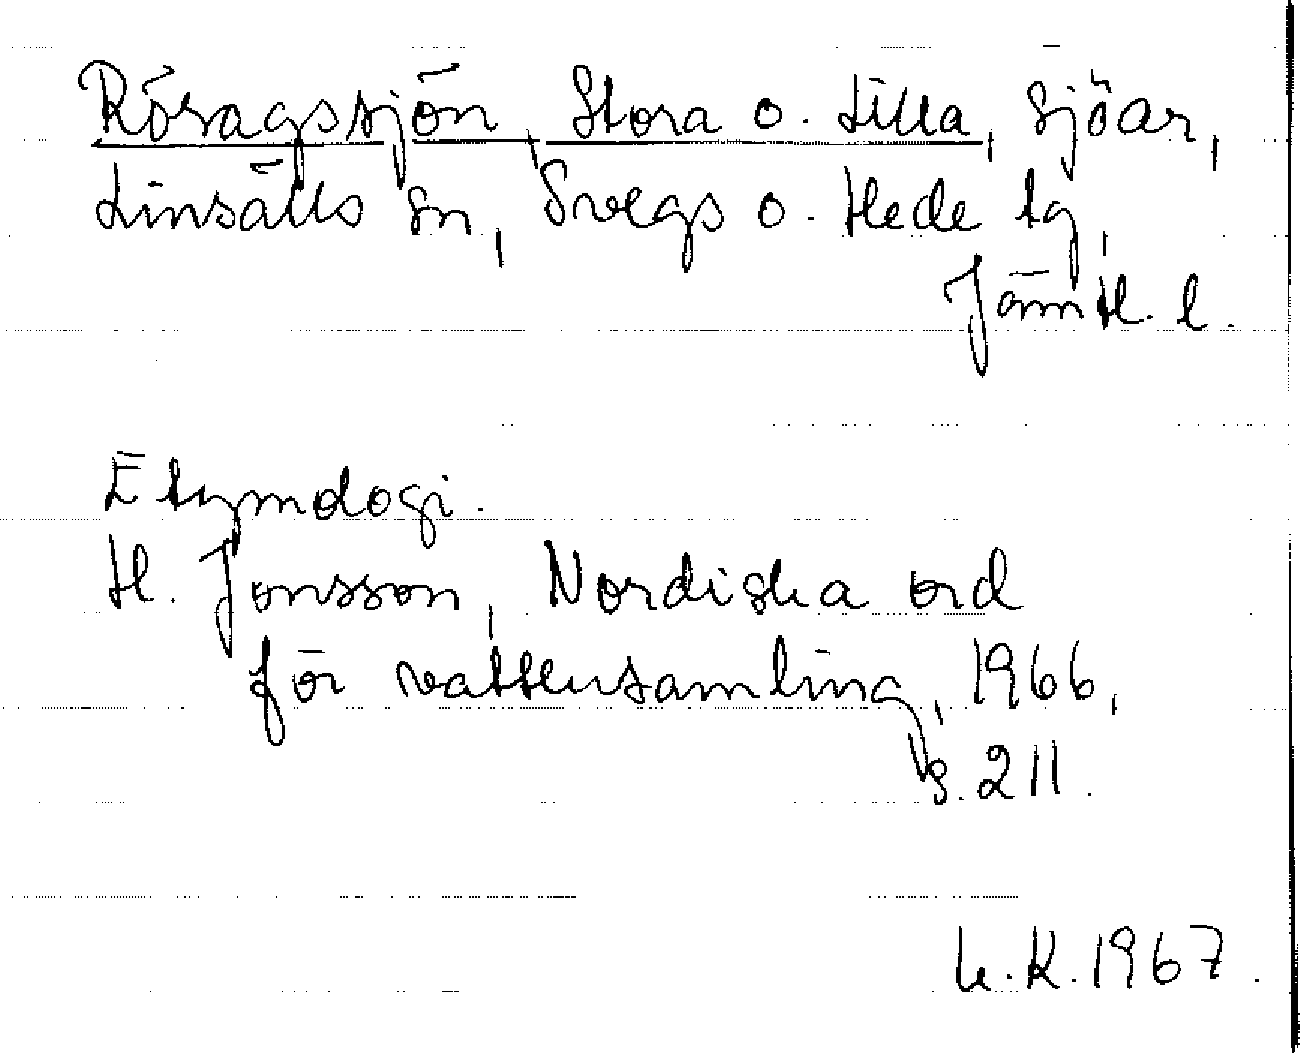 Rösagssjön, Stora o. Lilla, sjöar,
Linsälls sn, Svegs o. Hede tg,
Jämtl. l.
Etymologi.
H. Jonsson, Nordiska ord
för vattensamling, 1966,
s. 211.
K. 1967.